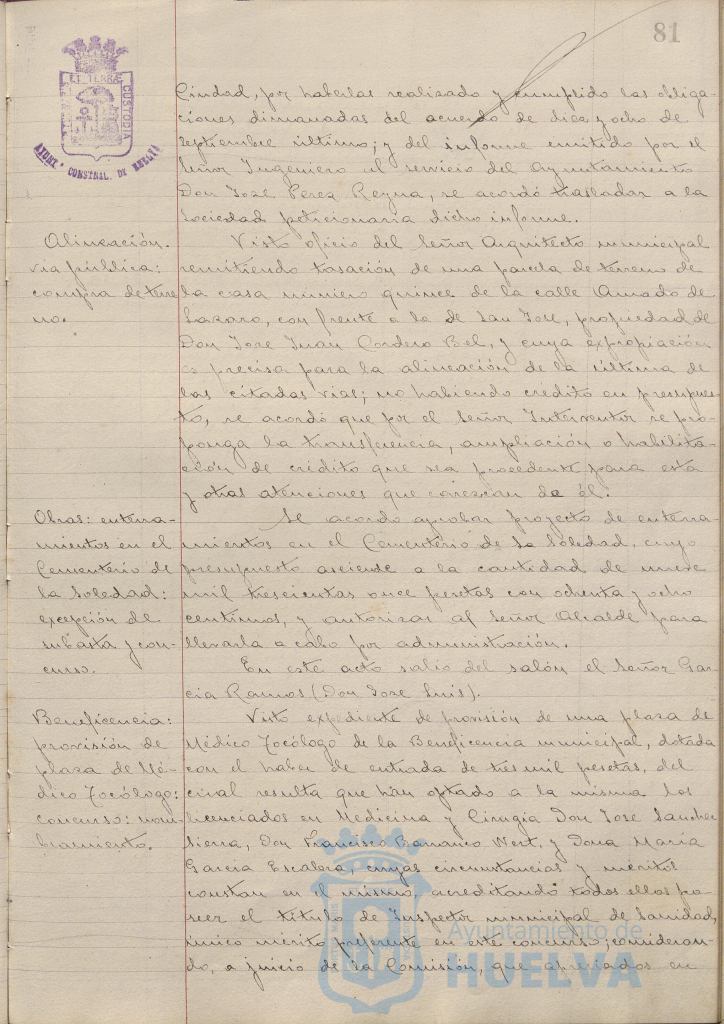 81
ET TERRÆ
CUSTODIA
AYUNT. CONSTNAL. DE HUELVA
Ciudad, por haberlas realizado y cumplido las obliga-
ciones dimanadas del acuerdo de diez y ocho de
septiembre último; y del informe emitido por el
Señor Ingeniero al servicio del Ayuntamiento
Don Jose Perez Reyna, se acordó trasladar a la
Sociedad peticionaria dicho informe.
Alineación.
via pública:
compra de terre
no.
Visto oficio del Señor Arquitecto municipal
remitiendo tasación de una parcela de terreno de
la casa número quince de la calle Amado de
Lazaro, con frente a la de San Jose, propiedad de
Don Jose Juan Cordero Bel, y cuya expropiación
es precisa para la alineación de la última de
las citadas vias; no habiendo crédito en presupues-
to, se acordó que por el Señor Interventor se pro-
ponga la transferencia, ampliación o habilita-
ción de crédito que sea procedente para esta
y otras atenciones que carezcan de él.
Obras: enterra-
mientos en el
Cementerio de
la Soledad:
excepción de
subasta y con-
curso.
Se acordó aprobar proyecto de enterra
mientos en el Cementerio de la Soledad, cuyo
presupuesto asciende a la cantidad de nueve
mil trescientas once pesetas con ochenta y ocho
centimos, y autorizar al Señor Alcalde para
llevarla a cabo por administración.
En este acto salió del salón el Señor Gar
cia Ramos (Don Jose Luis).
Beneficencia:
provisión de
plaza de Mé-
dico Tocólogo:
concurso: nom-
bramiento.
Visto expediente de provisión de una plaza de
Médico Tocólogo de la Beneficencia municipal, dotada
con el haber de entrada de tres mil pesetas, del
cual resulta que han optado a la misma los
licenciados en Medicina y Cirugia Don Jose Sanchez
Sierra, Don Francisco Barranco Wert, y Dona Maria
Garcia Escalera, cuyas circunstancias y méritos
constan en el mismo, acreditando todos ellos po-
seer el titulo de Inspector municipal de Sanidad,
único mérito preferente en este concurso; consideran-
do, a juicio de la Comisión, que apreciados en
Ayuntamiento de
HUELVA